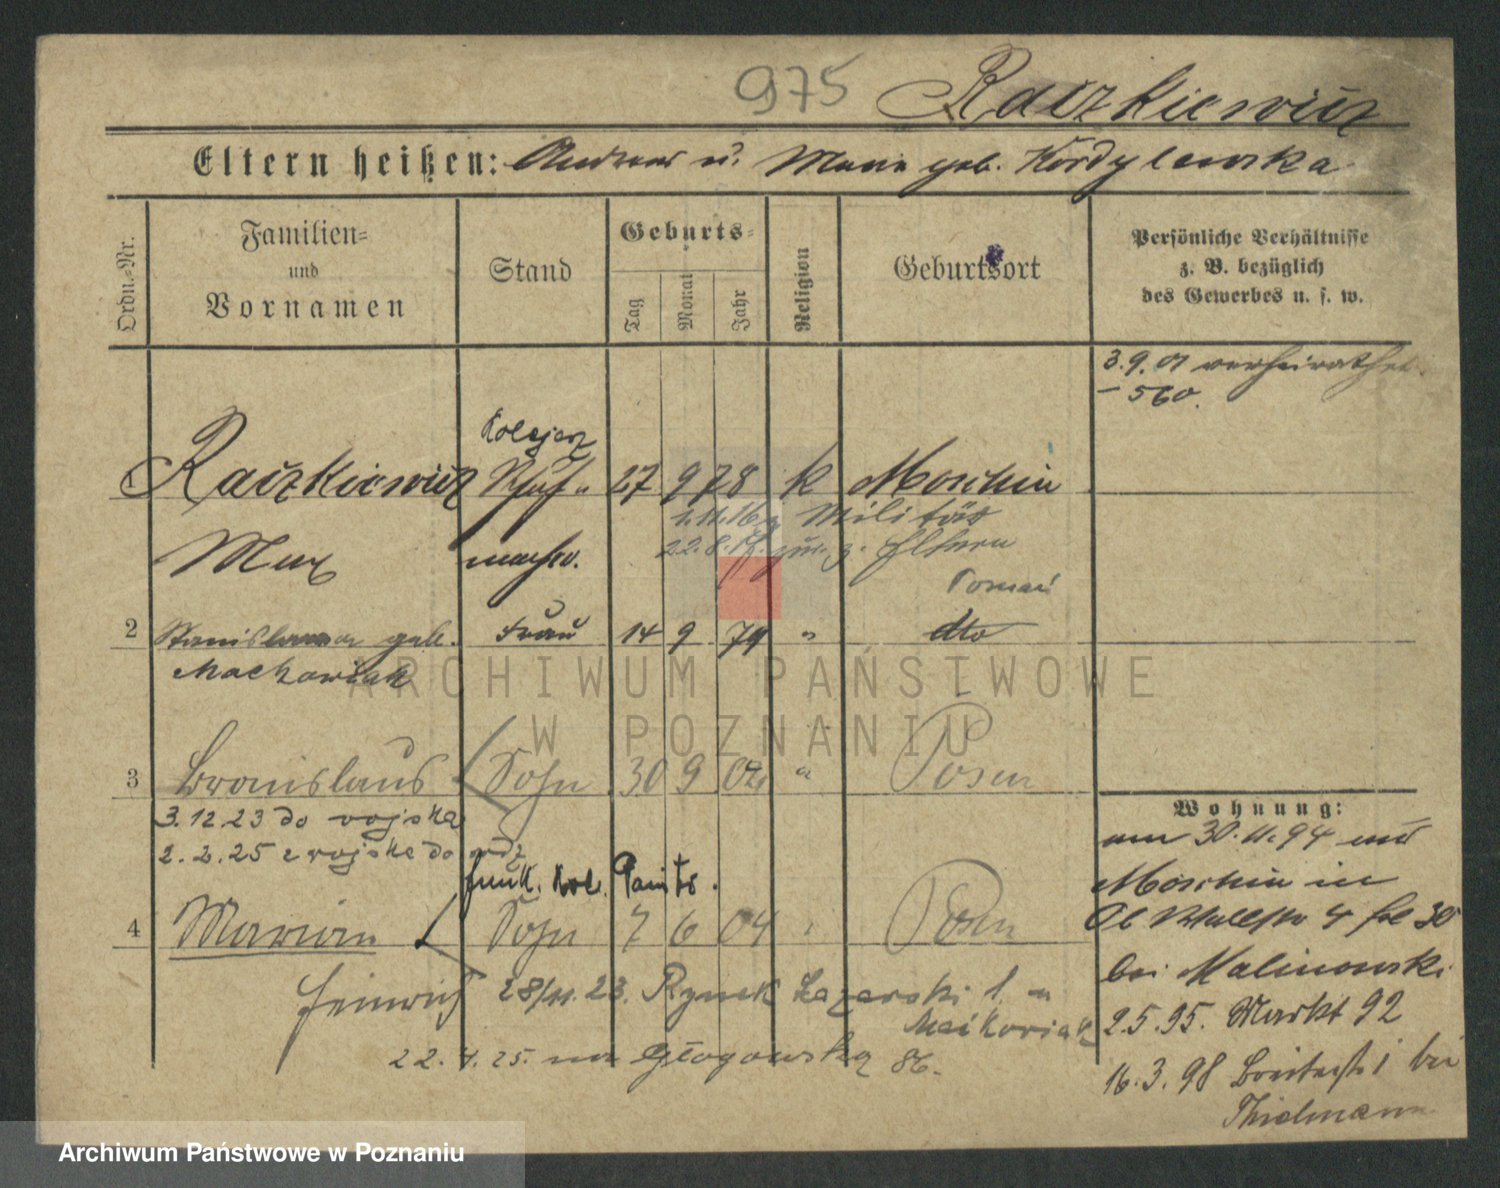 975 Raczkiewicz
Eltern heißen: Andreas u. Marie geb. Kordylewska
Ordn.-Nr.
Familien-
und
Vornamen
Stand
Geburts-
Tag
Monat
Jahr
Religion
Geburtsort
Persönliche Verhältnisse
z. B. bezüglich
des Gewerbes u. s. w.
3.9.01 verheirathet
- 560.
Kolejarz
1 Raczkiewicz 27 9 78 k Moschin
1.11.16 z Militär
22.8.17. zur. z. Eltern
Max macher.
Poznań
2 Stanislawa geb. Frau 14 9 79 " dto
Machowiak
3 Bronislaus Sohn 30 9 02 " Posen
3.12.23 do wojska
2.2.25 z wojska do
funk. Kol. Państw.
4 Marian Sohn 7 6 04 " Posen
Heinrich
28/11.23. Rynek Łazarski 1. u
Maćkowiak
22.4.25. na Głogowską 86.
Wohnung:
am 30.11.94 aus
Moschin in
Ob Wallstr 4 bei
bei Malinowski
2.5.95. Markt 92
16.3.98 Breitestr 1 bei
Thielmann
ARCHIWUM PAŃSTWOWE
W POZNANIU
Archiwum Państwowe w Poznaniu